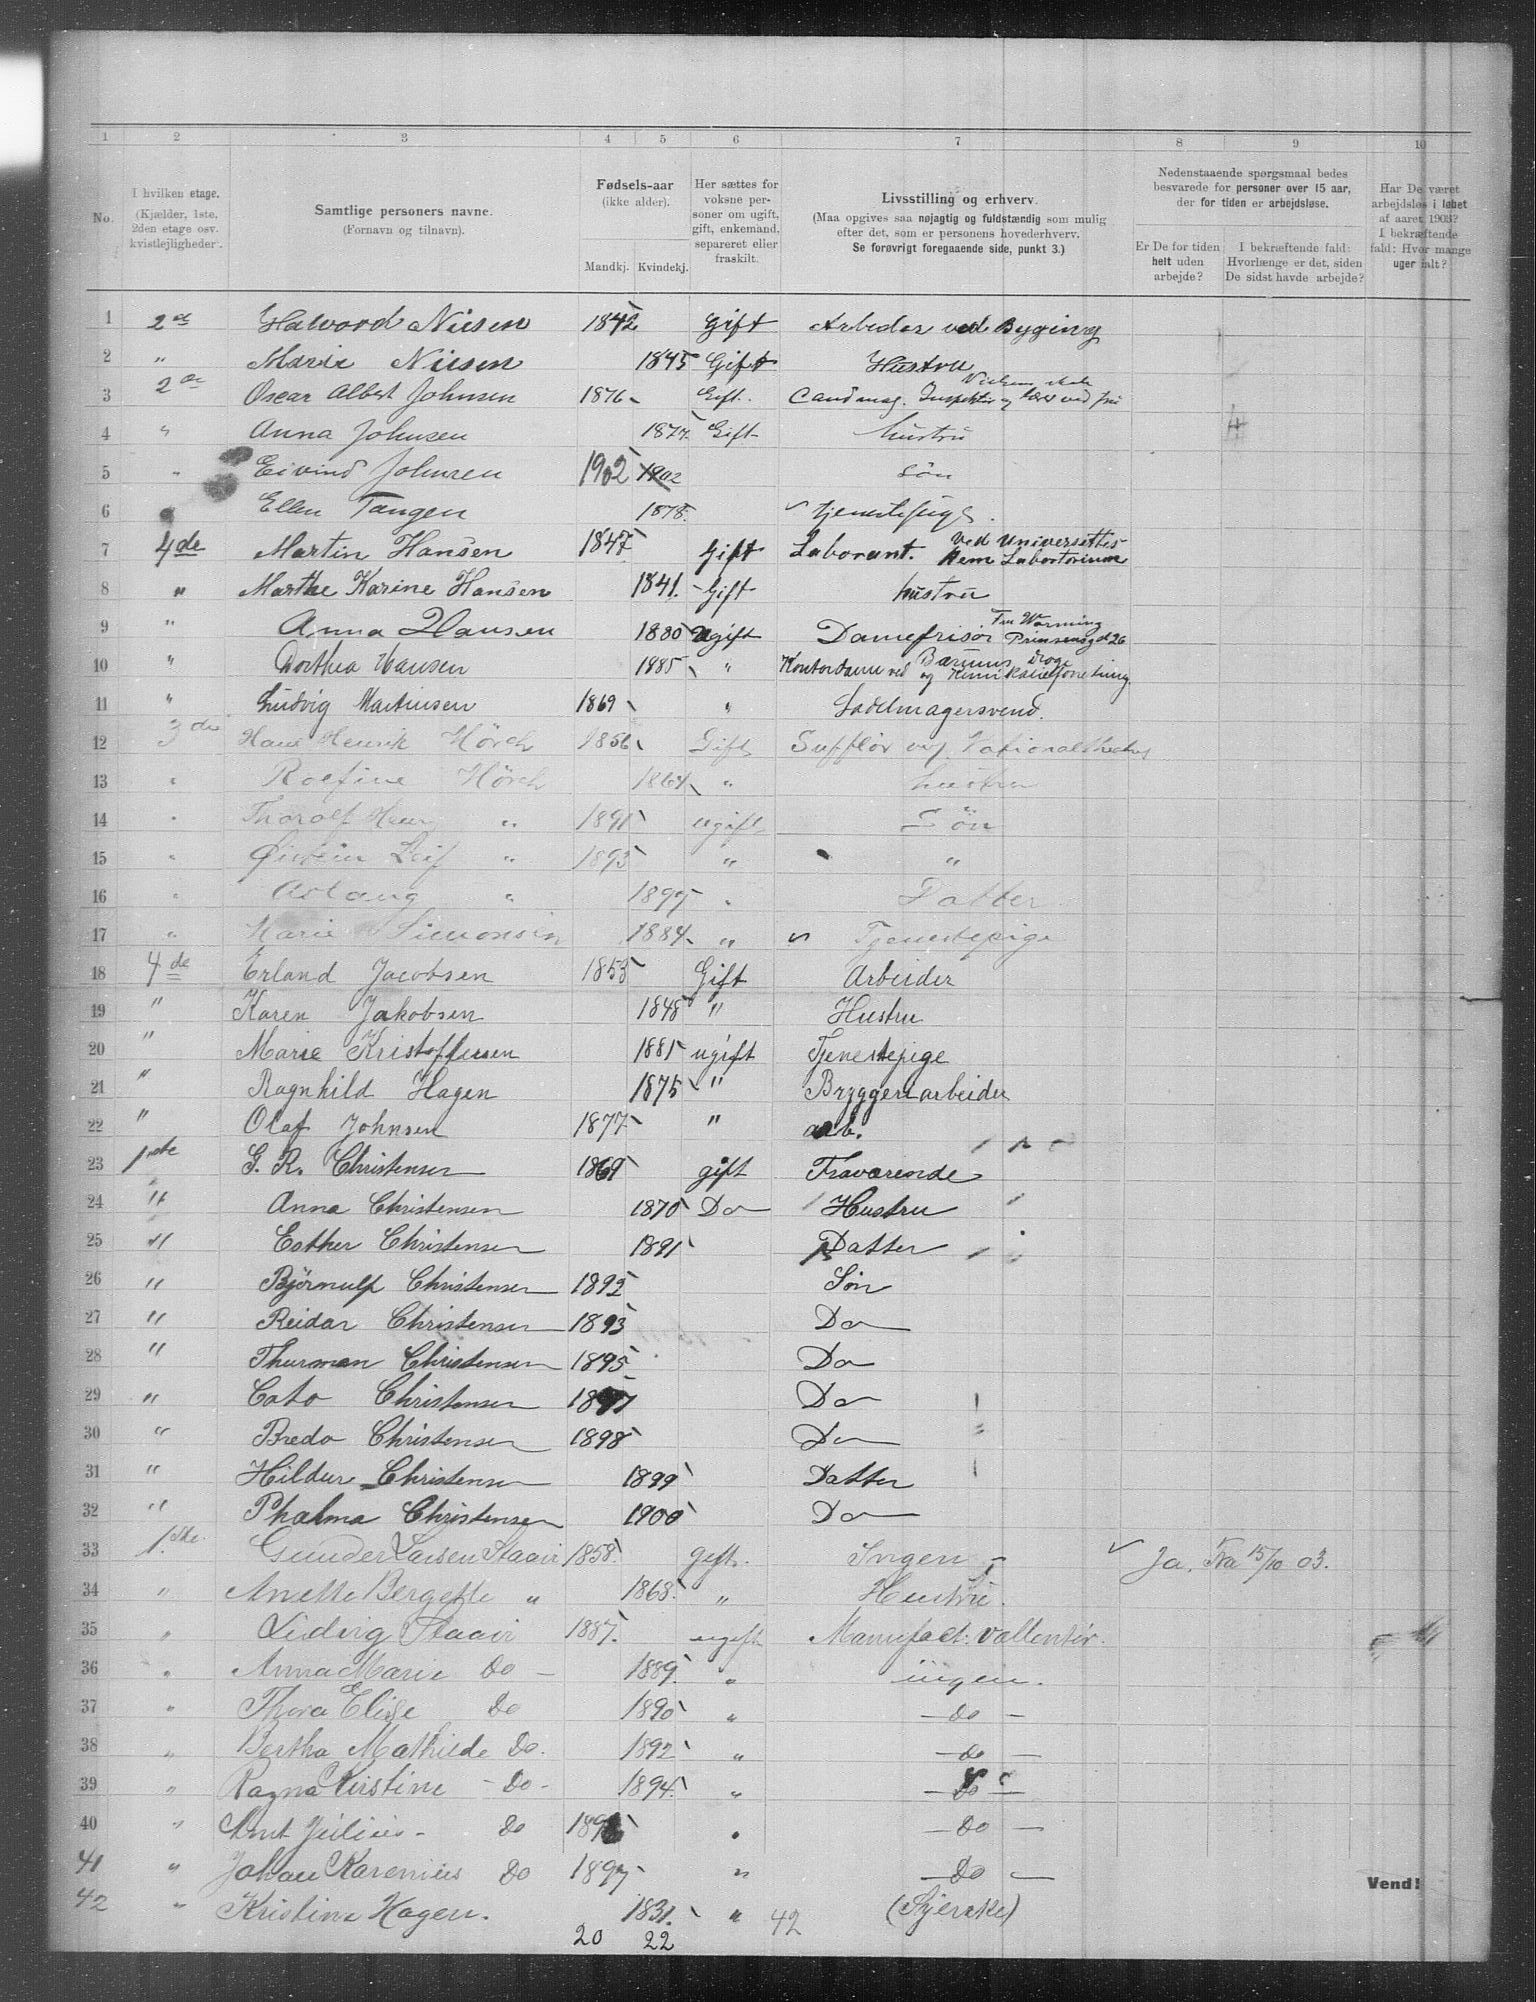 1 2 3 4 5 6 7 8 9 10
No.
I hvilken etage.
(Kjælder, 1ste, 2den etage osv. kvistlejligheder.)
Samtlige personers navne.
(Fornavn og tilnavn).
Fødsels-aar
(ikke alder).
Mandkj. Kvindekj.
Her sættes for voksne personer om ugift, gift, enkemand, separeret eller fraskilt.
Livsstilling og erhverv.
(Maa opgives saa nøjagtig og fuldstændig som mulig efter det, som er personens hovederhverv.
Se forøvrigt foregaaende side, punkt 3.)
Nedenstaaende spørgsmaal bedes besvarede for personer over 15 aar, der for tiden er arbejdsløse.
Er De for tiden helt uden arbejde?
I bekræftende fald: Hvorlænge er det, siden De sidst havde arbejde?
Har De været arbejdsløs i løbet af aaret 1903? I bekræftende fald: Hvor mange uger ialt?
1 2den Halvord Nilsen 1842 Gift Arbeder ved Byging
2 " Marie Nilsen 1845 Gift Hustru
3 2den Oscar Albert Johnsen 1876 Gift. Cand mag. Inspektør og lærer ved
4 " Anna Johnsen 1877 Gift hustru
5 " Eivind Johnsen 1902 1902 søn
6 " Ellen Tangen 1878. tjenestepige.
7 4de Martin Hansen 1847 Gift Laborant. Ved Universitets Kem Labortorium
8 " Marthe Karine Hansen 1841. Gift hustru
9 " Anna Hansen 1880 Ugift Damefrisør Fru Warming Prinsensgd 26
10 " Dorthea Hansen 1885 " Kontordame ved Bærums Droge og Kemikalieforretning.
11 " Ludvig Martinsen 1869 " Sadelmagersvend.
12 3die Hans Henrik Hörch 1856 Gift Sufflør ved Nationaltheatret
13 " Rolfine Hörch 1864 " hustru
14 " Thorolf Henr " 1891 ugift Søn
15 " Øistein Leif " 1893 " "
16 " Aslaug " 1899 " Datter
17 " Marie Simonsen 1884 " Tjenestepige
18 4de Erland Jacobsen 1853 Gift Arbeider
19 " Karen Jakobsen 1848 " Hustru
20 " Marie Kristoffersen 1881 ugift Tjenestepige
21 " Ragnhild Hagen 1875 " Bryggeriarbeider
22 " Olaf Johnsen 1877 " arb.
23 1ste G. R. Christensen 1869 gift Fraværende
24 " Anna Christensen 1870 Do Hustru
25 " Esther Christensen 1891 Datter
26 " Björnulf Christensen 1892 Sön
27 " Reidar Christensen 1893 Do
28 " Thurman Christensen 1895 Do
29 " Cato Christensen 1897 Do
30 " Bredo Christensen 1898 Do
31 " Hildur Christensen 1899 Datter
32 " Thalma Christensen 1900 Do
33 1ste Gunder Larsen Staair 1858. gift. Ingen Ja, Fra 15/10 03.
34 " Anette Bergette " 1868. " Hustru.
35 " Ludvig Staair 1887. ugift Manufact:
36 " Anna Marie Do 1889. " ingen.
37 " Thora Elise Do 1890 " Do
38 " Bertha Mathilde Do. 1892 " Do
39 " Ragna Kirstine Do 1894. " Do
40 " Arnt Julius Do " Do
41 " Johan Karenius Do 1897 " Do
Vend!
42 " Kristine Hagen. 1831. " 42
20 22